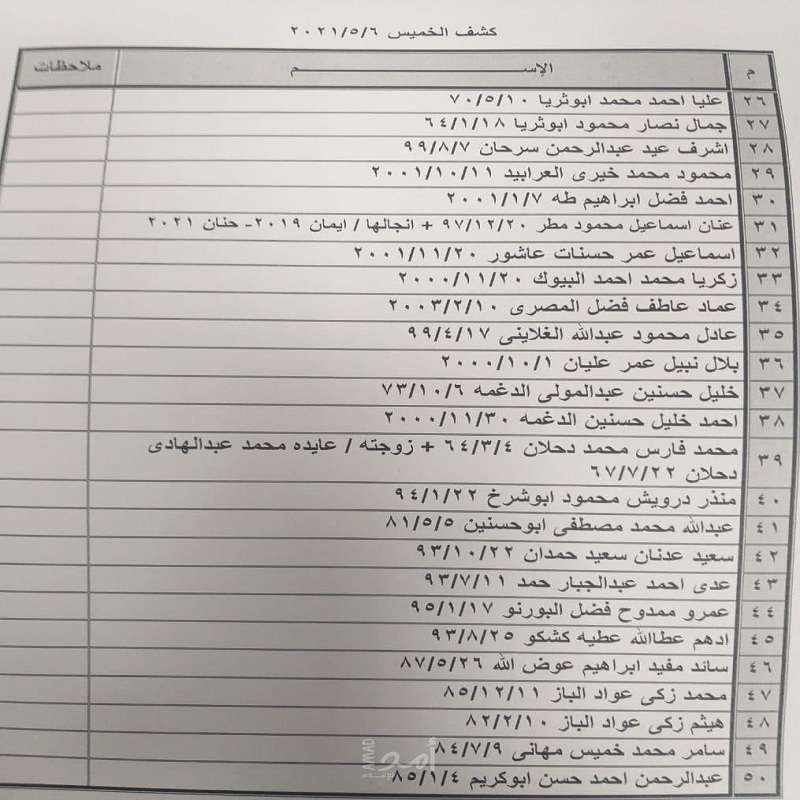 كشف الخميس ٢٠٢١/٥/٦
م الإســـــــــــم ملاحظات
٢٦ عليا احمد محمد ابوثريا ٧٠/٥/١٠
٢٧ جمال نصار محمود ابوثريا ٦٤/١/١٨
٢٨ اشرف عيد عبدالرحمن سرحان ٩٩/٨/٧
٢٩ محمود محمد خيرى العرابيد ٢٠٠١/١٠/١١
٣٠ احمد فضل ابراهيم طه ٢٠٠١/١/٧
٣١ عنان اسماعيل محمود مطر ٩٧/١٢/٢٠ + انجالها / ايمان ٢٠١٩- حنان ٢٠٢١
٣٢ اسماعيل عمر حسنات عاشور ٢٠٠١/١١/٢٠
٣٣ زكريا محمد احمد البيوك ٢٠٠٠/١١/٢٠
٣٤ عماد عاطف فضل المصرى ٢٠٠٣/٢/١٠
٣٥ عادل محمود عبدالله الغلاينى ٩٩/٤/١٧
٣٦ بلال نبيل عمر عليان ٢٠٠٠/١٠/١
٣٧ خليل حسنين عبدالمولى الدغمه ٧٣/١٠/٦
٣٨ احمد خليل حسنين الدغمه ٢٠٠٠/١١/٣٠
٣٩ محمد فارس محمد دحلان ٦٤/٣/٤ + زوجته / عايده محمد عبدالهادى
دحلان ٦٧/٧/٢٢
٤٠ منذر درويش محمود ابوشرخ ٩٤/١/٢٢
٤١ عبدالله محمد مصطفى ابوحسنين ٨١/٥/٥
٤٢ سعيد عدنان سعيد حمدان ٩٣/١٠/٢٢
٤٣ عدى احمد عبدالجبار حمد ٩٣/٧/١١
٤٤ عمرو ممدوح فضل البورنو ٩٥/١/١٧
٤٥ ادهم عطاالله عطيه كشكو ٩٣/٨/٢٥
٤٦ سائد مفيد ابراهيم عوض الله ٨٧/٥/٢٦
٤٧ محمد زكى عواد الباز ٨٥/١٢/١١
٤٨ هيثم زكى عواد الباز ٨٢/٢/١٠
٤٩ سامر محمد خميس مهانى ٨٤/٧/٩
٥٠ عبدالرحمن احمد حسن ابوكريم ٨٥/١/٤
أمد
AMAD